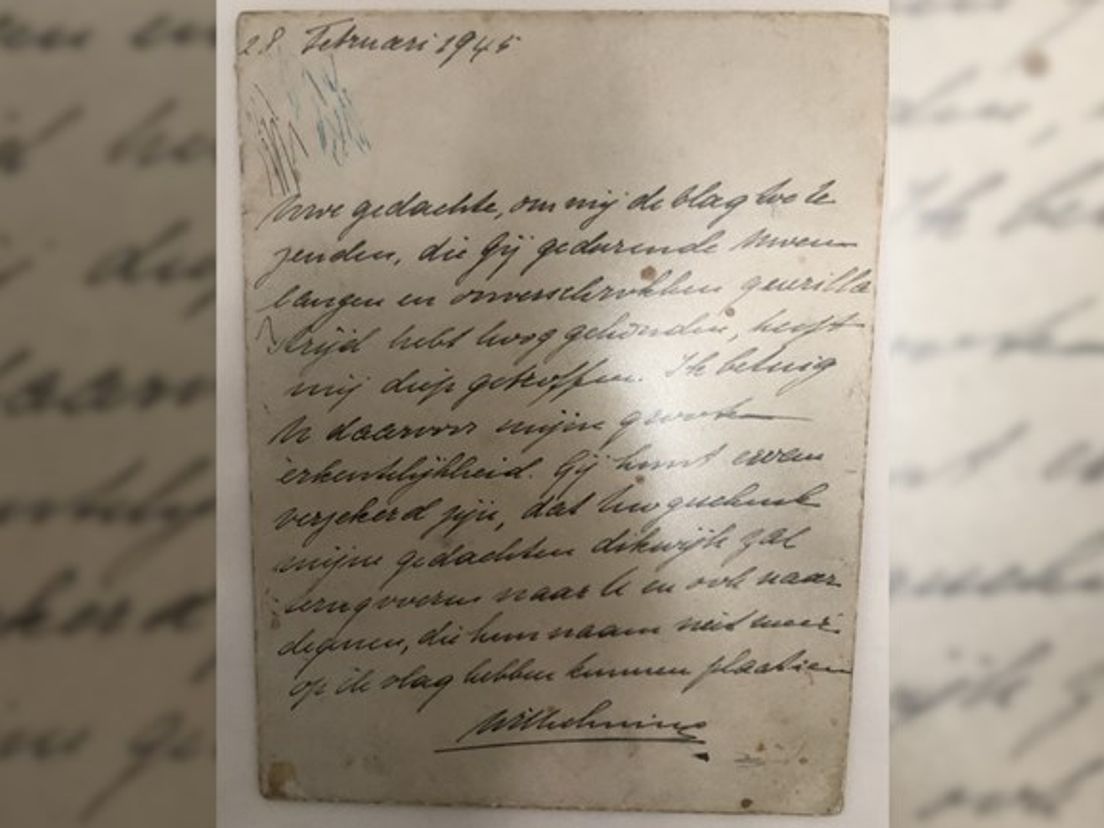 28 Februari 1945
Uwe gedachte, om mij de vlag toe te
zenden, die Gij gedurende Uwen
langen en onverschrokken guerilla
strijd hebt hoog gehouden, heeft
mij diep getroffen. Ik betuig
U daarvoor mijne groote
erkentelijkheid. Gij kunt ervan
verzekerd zijn, dat Uw geschenk
mijne gedachten dikwijls zal
terugvoeren naar U en ook naar
degenen, die hun naam niet meer
op de vlag hebben kunnen plaatsen
Wilhelmina